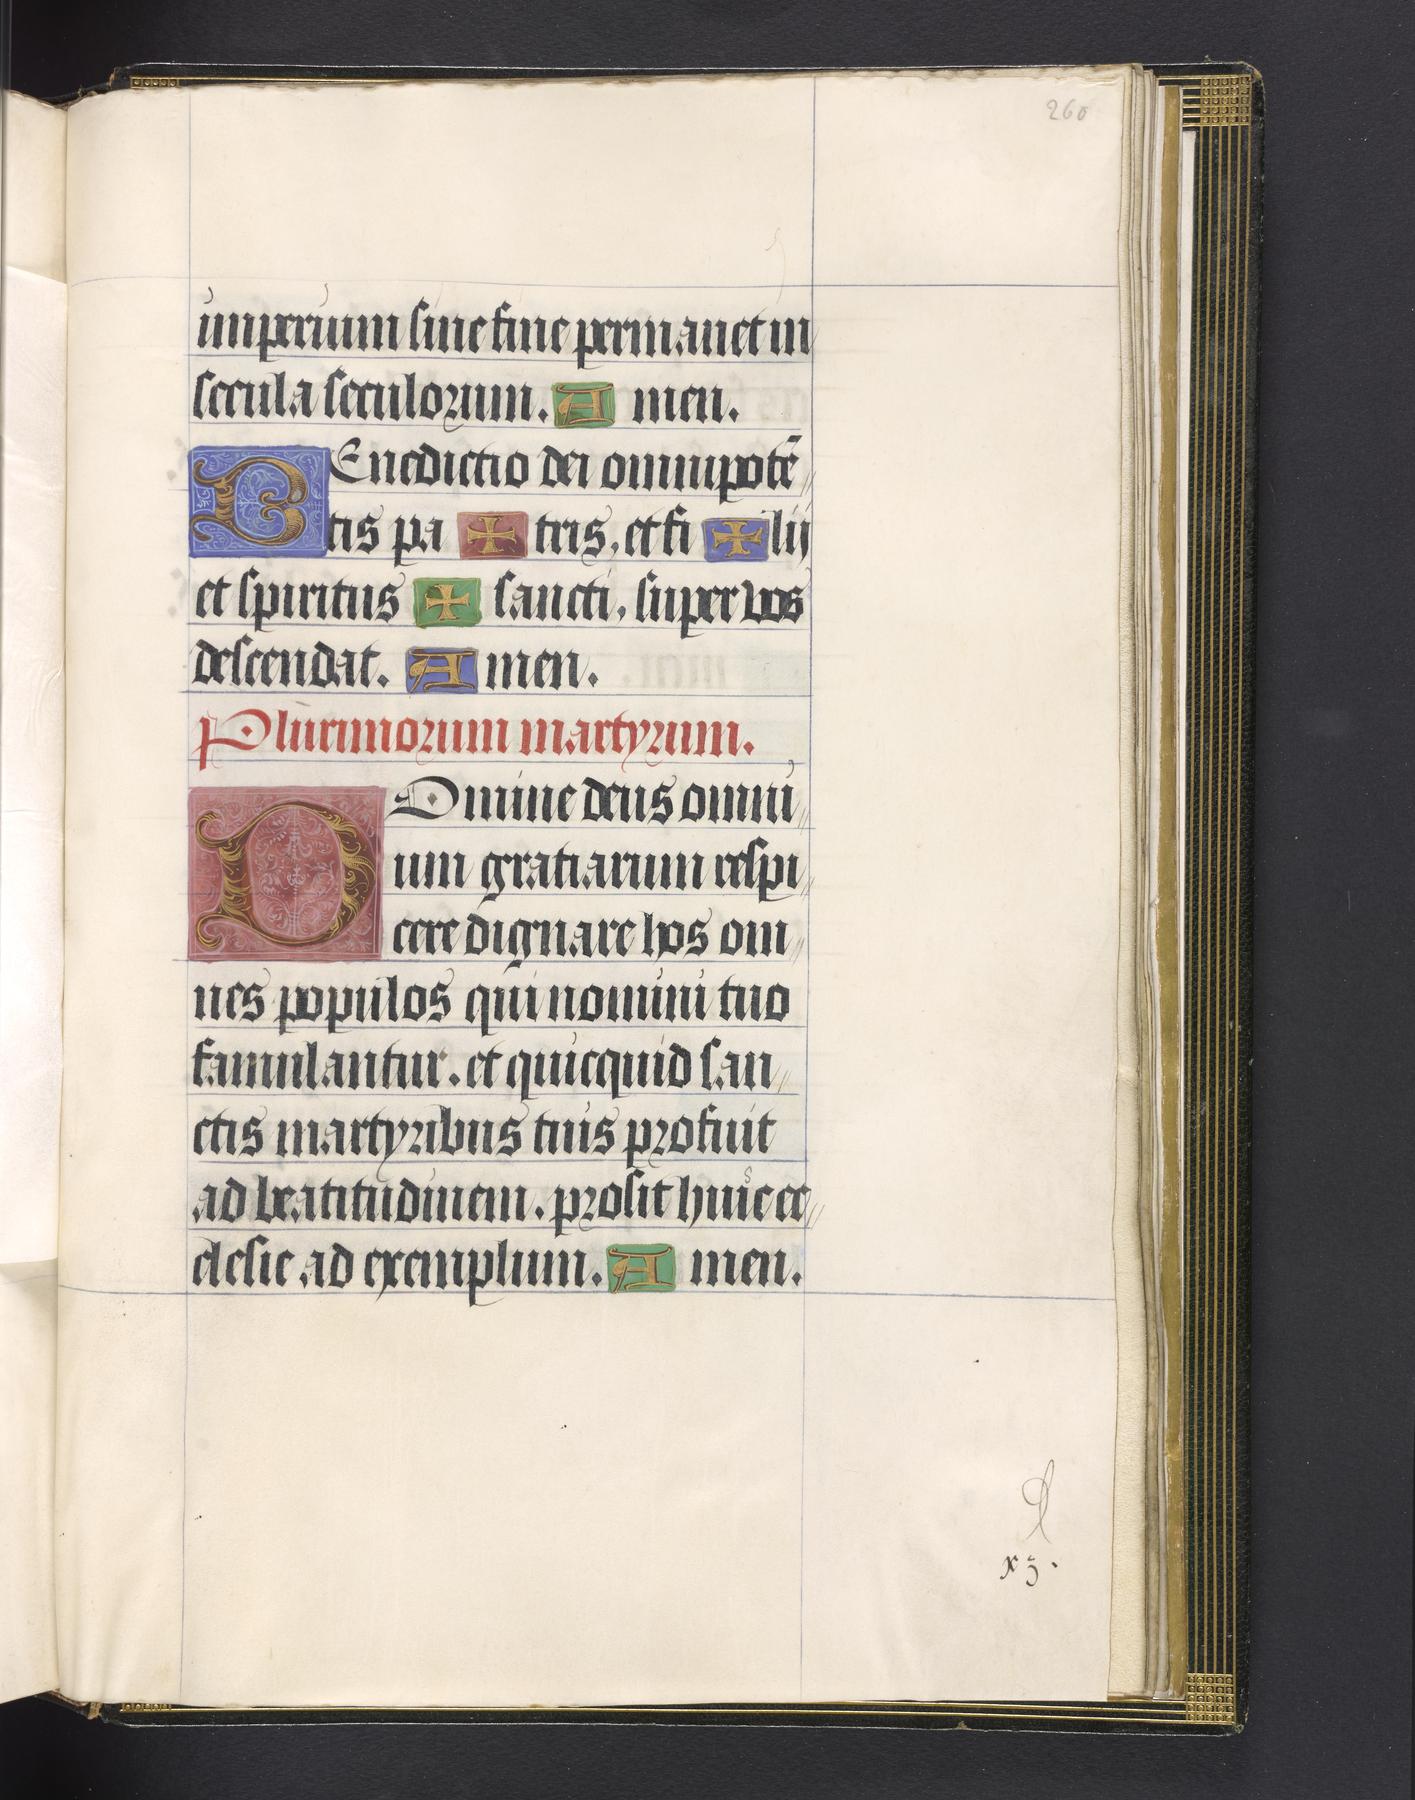 260
imperium sine fine permanet in
secula seculorum. Amen.
BEnedictio dei omnipotē
tis pa ✠ tris, et fi ✠ lij
et spiritus ✠ sancti, super vos
descendat. Amen.
Plurimorum martyrum.
DOmine deus omni
um gratiarum respi
cere dignare hos om
nes populos qui nomini tuo
famulantur. et quicquid san
ctis martyribus tuis profuit
ad beatitudinem. prosit huic ec
clesie ad exemplum. Amen.
x3.